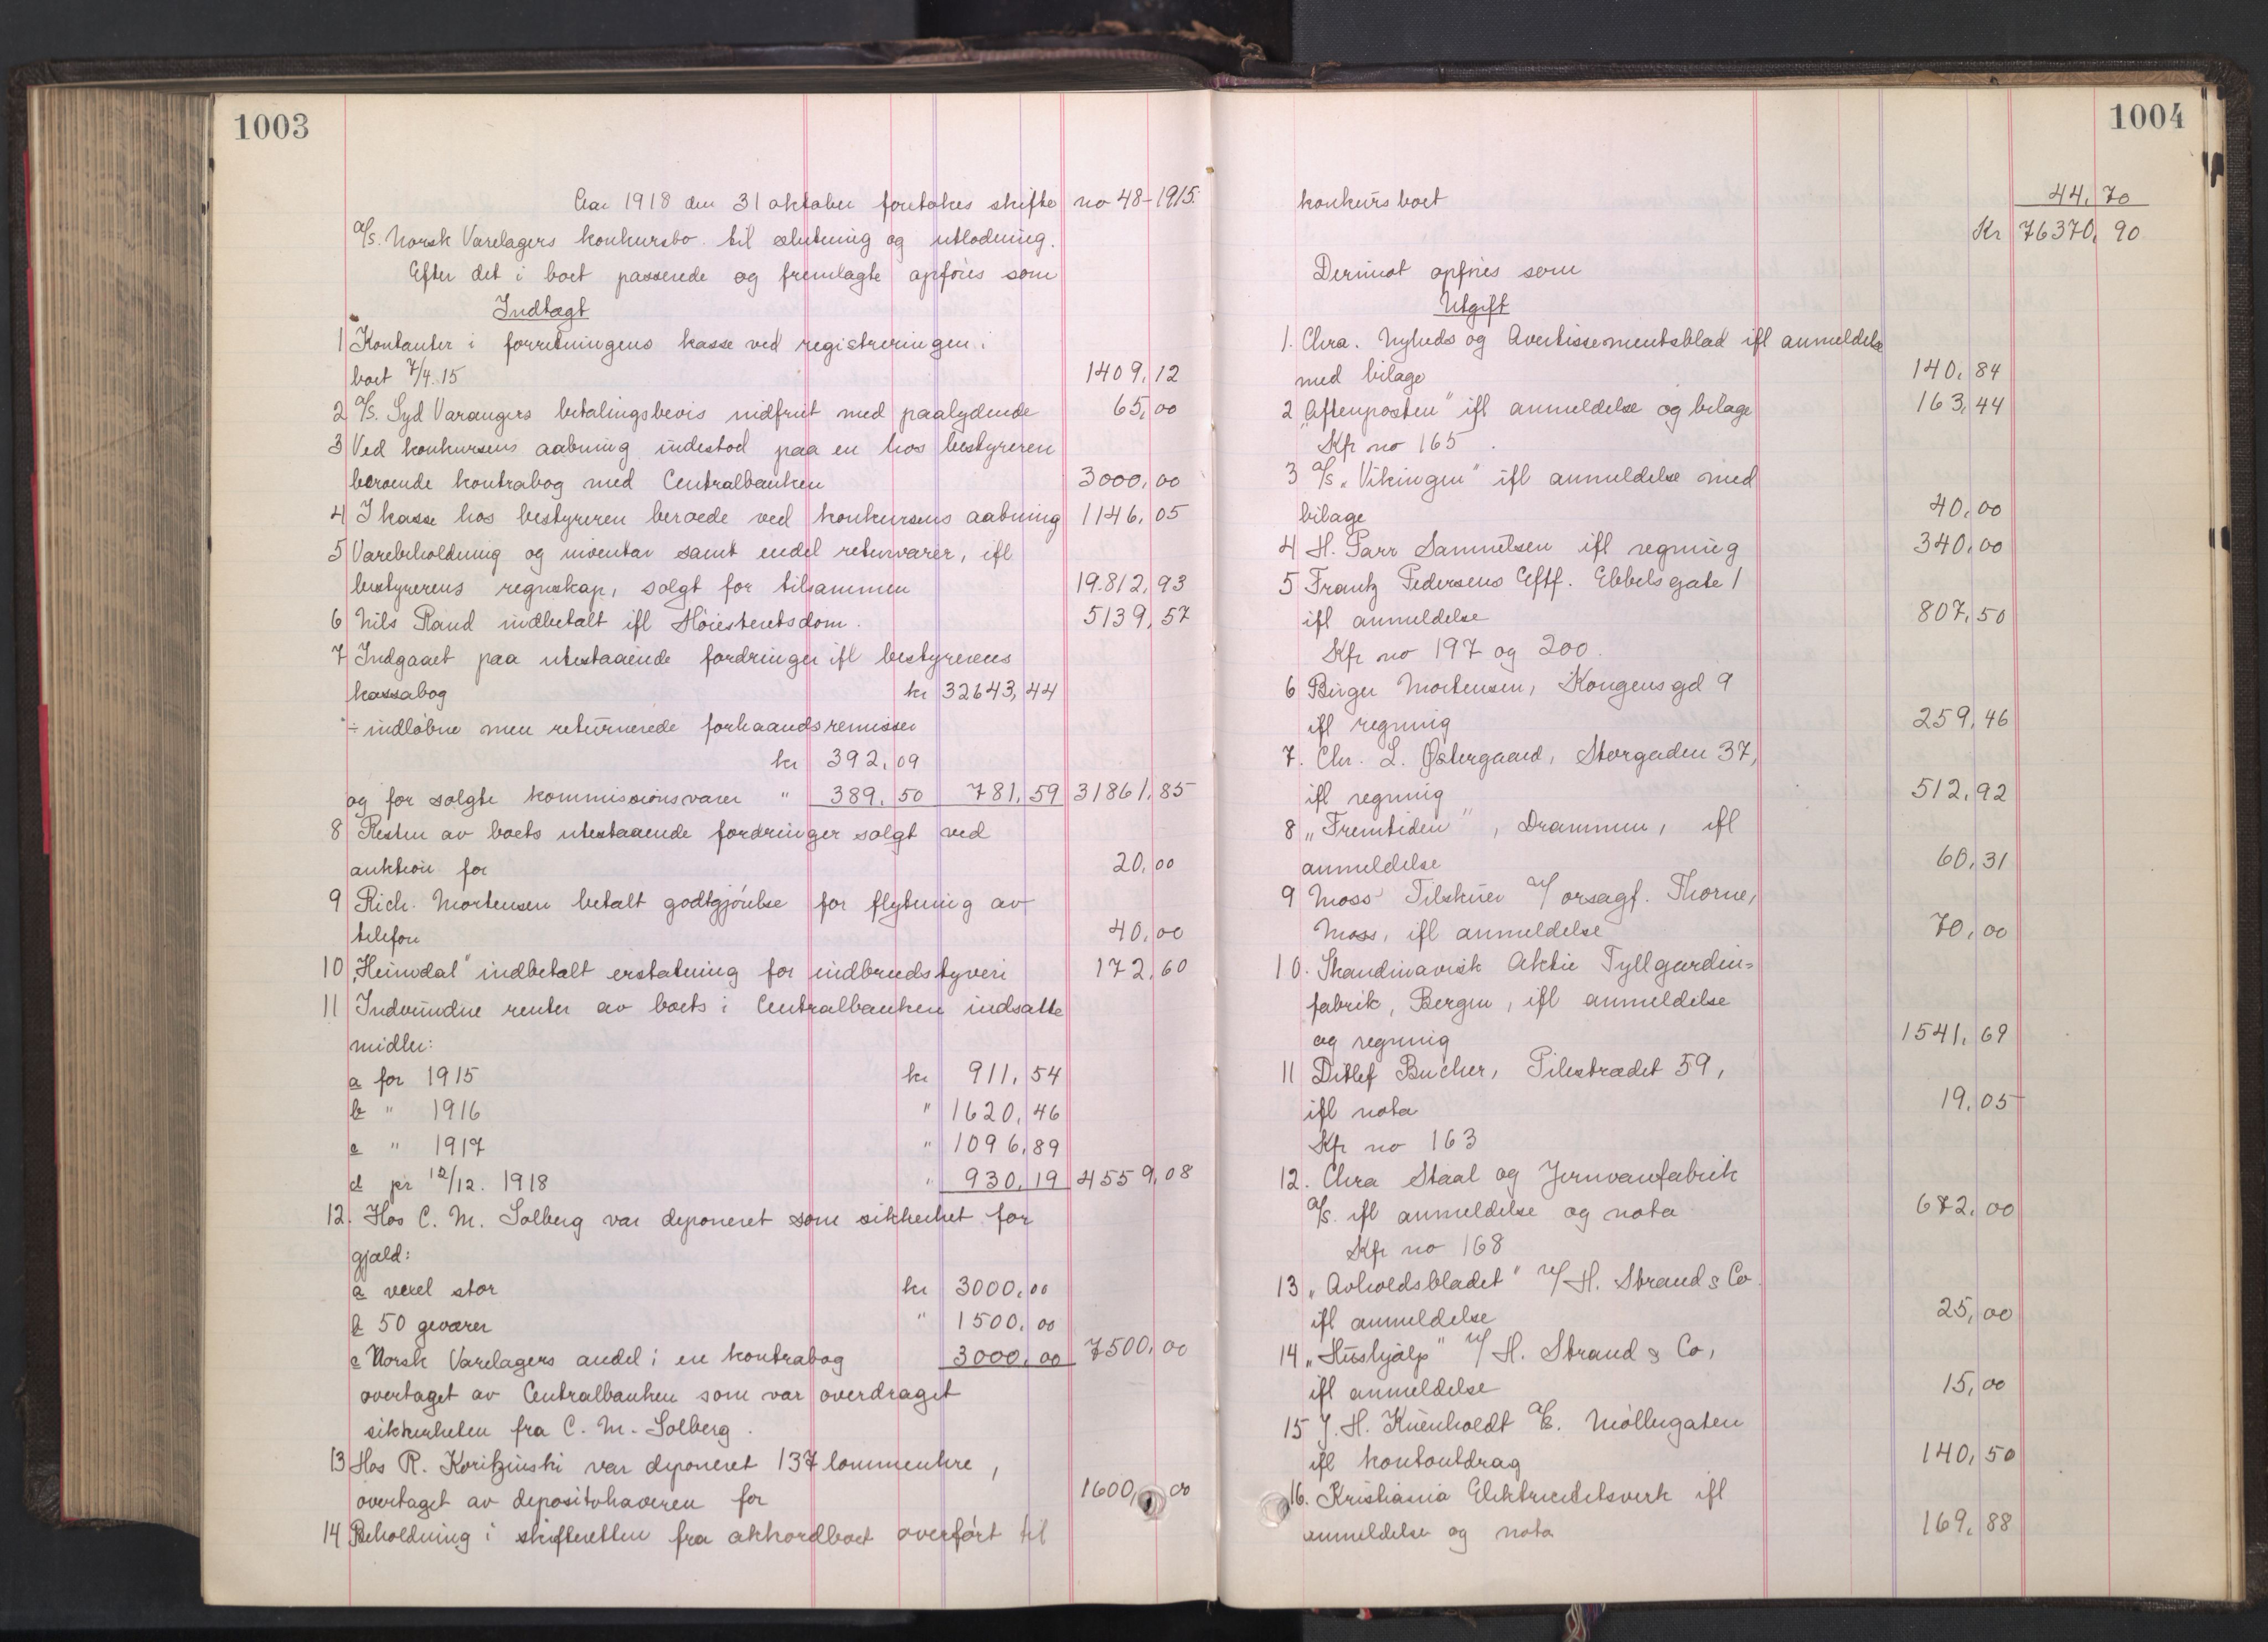 1003
Aar 1918 den 31 oktober foretokes skifte no 48-1915.
A/S. Norsk Varelagers konkursbo til slutning og utlodning.
Efter det i boet passerede og fremlagte opføres som
Indtægt
1 Kontanter i forretningens kasse ved registreringen i
boet 7/4.15 1409,12
2 A/S. Syd Varangers betalingsbevis indfriet med paalydende 65,00
3 Ved konkursens aabning indestod paa en hos bestyreren
beroende kontrabog med Centralbanken 3000,00
4 I kasse hos bestyreren beroede ved konkursens aabning 1146,05
5 Varebeholdning og inventar samt endel returvarer, ifl
bestyrerens regnskap, solgt for tilsammen 19.812,93
6 Nils Rand indbetalt ifl Høiesteretsdom. 5139,57
7 Indgaaet paa utestaaende fordringer ifl bestyrerens
kassabog kr 32643,44
÷ indløbne men returnerede forhaandsremisser
kr 392,09
og for solgte kommissionsvarer " 389,50 781,59 31861,85
8 Resten av boets utestaaende fordringer solgt ved
auktion for 20,00
9 Rich. Mortensen betalt godtgjørelse for flytning av
telefon 40,00
10 „Heimdal" indbetalt erstatning for indbrudstyveri 172,60
11 Indvundne renter av boets i Centralbanken indsatte
midler:
a for 1915 kr 911,54
b " 1916 " 1620,46
c " 1917 " 1096,89
d pr 12/12. 1918 " 930,19 4559,08
12. Hos C. M. Solberg var deponeret som sikkerhet for
gjæld:
a vexel stor kr 3000,00
b 50 geværer " 1500,00
c Norsk Varelagers andel i en kontrabog 3000,00 7500,00
overtaget av Centralbanken som var overdraget
sikkerheten fra C. M. Solberg.
13 Hos R. Koritzinski var deponeret 137 lommeuhre,
overtaget av depositohaveren for 1600,00
14 Beholdning i skifteretten fra akkordboet overført til
1004
konkursboet 44,70
Kr 76370,90
Derimot opføres som
Utgift
1. Chra. Nyheds og Avertissementsblad ifl anmeldelse
med bilage 140,84
2 „Aftenposten" ifl anmeldelse og bilage 163,44
Kfr no 165.
3 A/S „Vikingen" ifl anmeldelse med
bilage 40,00
4 H. Parr Samuelsen ifl regning 340,00
5 Frantz Pedersens Eftf. Ebbelsgate 1
ifl anmeldelse 807,50
Kfr no 197 og 200.
6 Birger Mortensen, Kongensgd 9
ifl regning 259,46
7. Chr. L. Østergaard, Storgaden 37,
ifl regning 512,92
8 „Fremtiden", Drammen, ifl
anmeldelse 60,31
9 Moss Tilskuer v/ orsagf. Thorne,
Moss, ifl anmeldelse 70,00
10. Skandinavisk Aktie Tyllgardin=
fabrik, Bergen, ifl anmeldelse
og regning 1541,69
11 Ditlef Bucher, Pilestrædet 59,
ifl nota 19,05
Kfr no 163
12. Chra Staal og Jernvarefabrik
A/S. ifl anmeldelse og nota 672,00
Kfr no 168
13 „Avholdsbladet" v/ H. Strand & Co.
ifl anmeldelse 25,00
14 „Hushjælp" v/ H. Strand & Co,
ifl anmeldelse 15,00
15 J. H. Küenholdt A/S. Møllergaten
ifl kontoutdrag 140,50
16. Kristiania Elektricitetsverk ifl
anmeldelse og nota 169,88